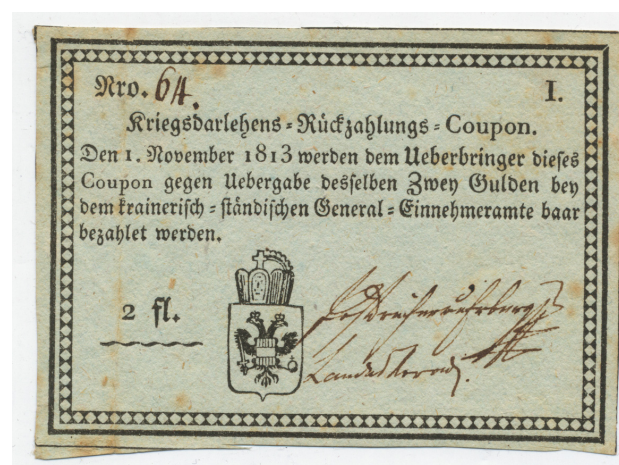 Nro. 64. I.
Kriegsdarlehens = Rückzahlungs = Coupon.
Den 1. November 1813 werden dem Ueberbringer dieses
Coupon gegen Uebergabe desselben Zwey Gulden bey
dem krainerisch = ständischen General = Einnehmeramte baar
bezahlet werden.
2 fl.